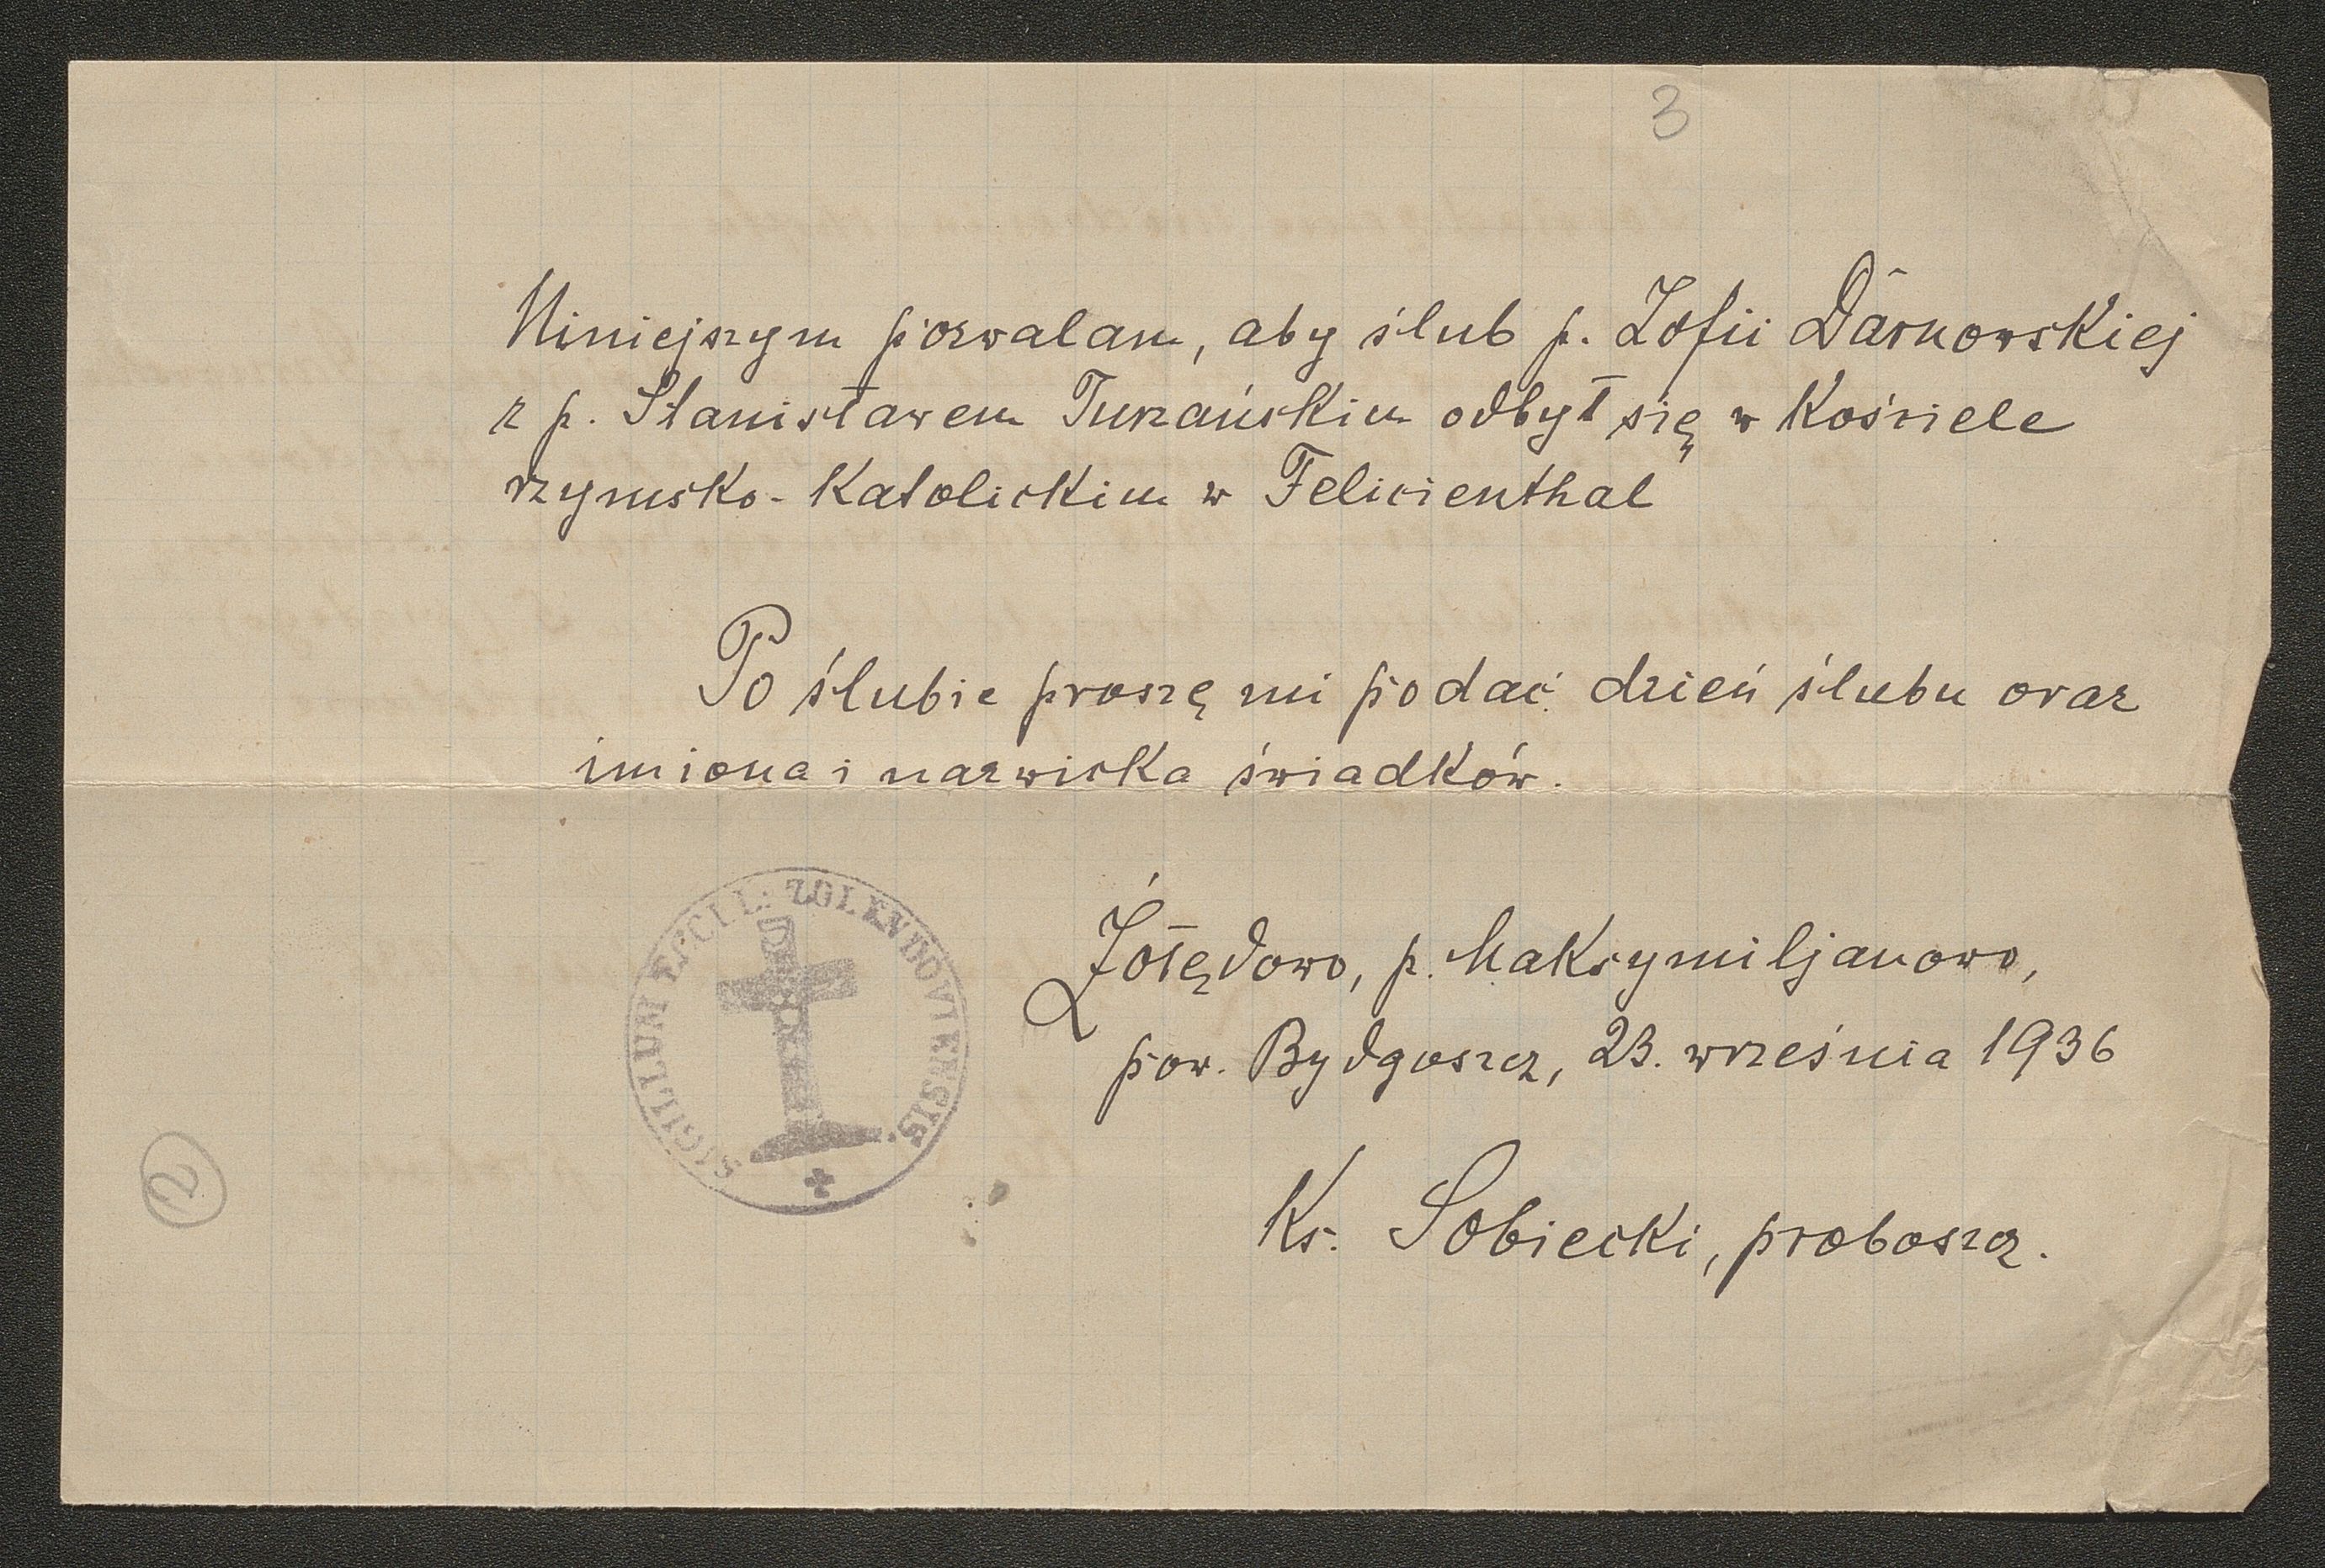 3
Niniejszym pozwalam, aby ślub p. Zofii Darnowskiej
z p. Stanisławem Turzańskim odbył się w Kościele
rzymsko-Katolickim w Felicienthal
Po ślubie proszę mi podać dzień ślubu oraz
imiona i nazwiska świadków.
SIGILLUM ECCL: ZOLENDOVIENSIS
Żołędowo, p. Maksymiljanowo,
pow. Bydgoszcz, 23. września 1936
Ks. Sobiecki, proboszcz.